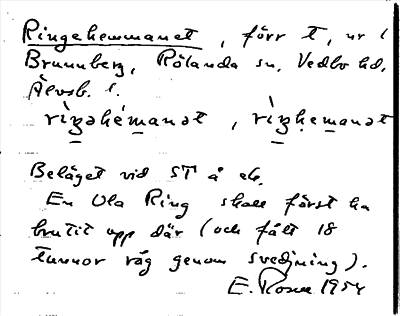 Ringehemmanet, förr t, nr 1
Brunnberg, Rölanda sn, Vedbo hd,
Älvsb. l.
rìŋəhémanət, rìŋhemanət
Beläget vid ST å ek.
En Ola Ring skall först ha
brutit upp där (och fått 18
tunnor råg genom svedjning).
E. Rosell 1954